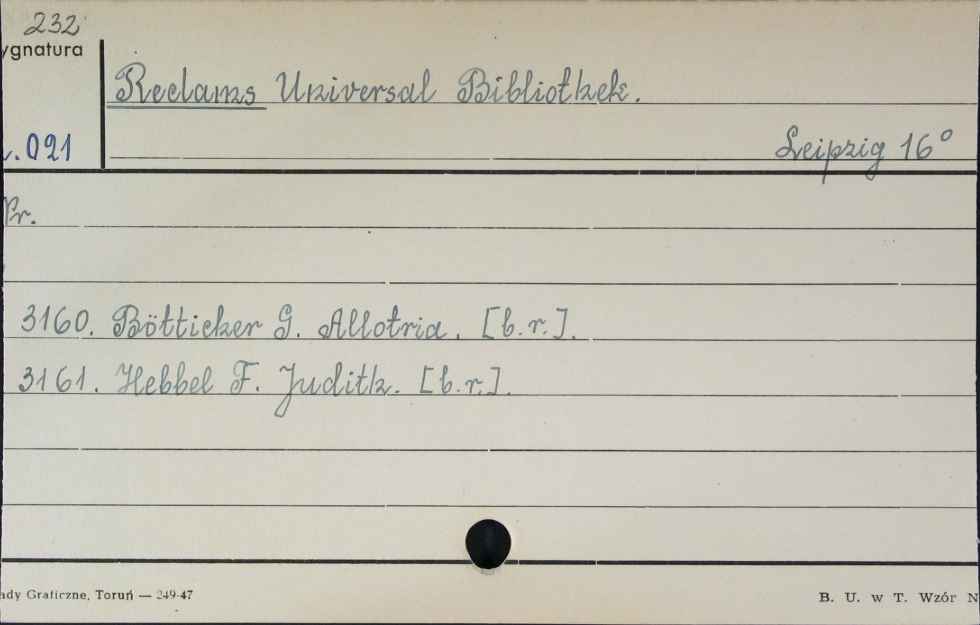 232
ygnatura
Reclams Universal Bibliothek.
.021
Leipzig 16°
Nr.
3160. Bötticher G. Allotria. [b.r.].
3161. Hebbel F. Judith. [b.r.].
ady Graficzne, Toruń — 249-47
B. U. w T. Wzór N